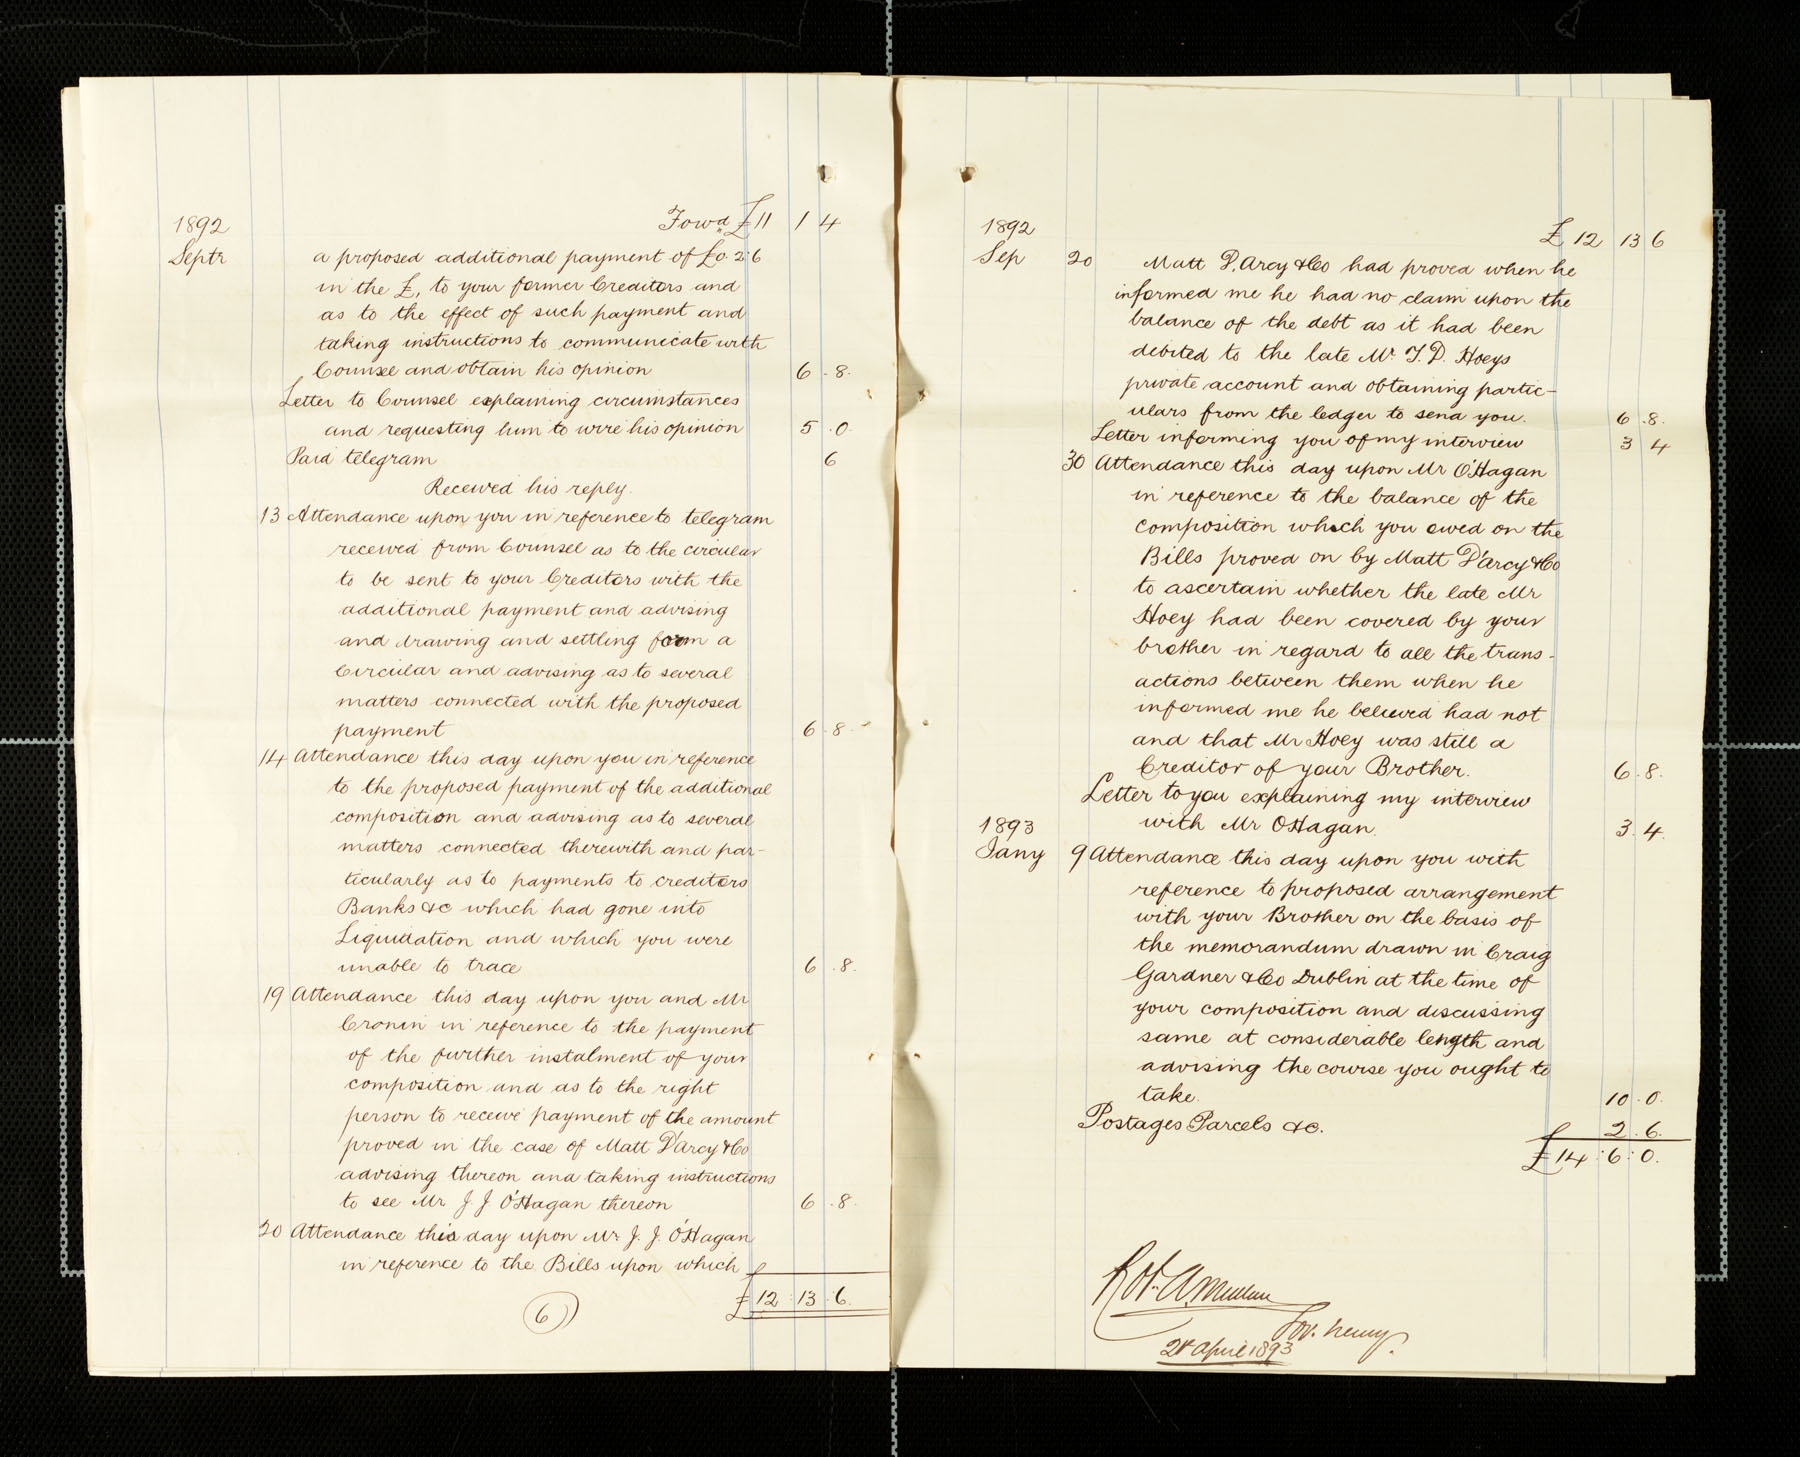 Fowd £11 1 4
1892
Septr a proposed additional payment of £0.2.6
in the £, to your former Creditors and
as to the effect of such payment and
taking instructions to communicate with
Counsel and obtain his opinion 6.8.
Letter to Counsel explaining circumstances
and requesting him to wire his opinion 5.0
Paid telegram 6
Received his reply.
13 Attendance upon you in reference to telegram
received from Counsel as to the circular
to be sent to your Creditors with the
additional payment and advising
and drawing and settling form a
Circular and advising as to several
matters connected with the proposed
payment 6.8
14 Attendance this day upon you in reference
to the proposed payment of the additional
composition and advising as to several
matters connected therewith and par-
ticularly as to payments to creditors
Banks &c which had gone into
Liquidation and which you were
unable to trace 6.8.
19 Attendance this day upon you and Mr
Cronin in reference to the payment
of the further instalment of your
composition and as to the right
person to receive payment of the amount
proved in the case of Matt D'Arcy & Co
advising thereon and taking instructions
to see Mr J. J O'Hagan thereon 6.8.
20 Attendance this day upon Mr J. J. O'Hagan
in reference to the Bills upon which
£12:13:6.
6
1892 £12 13 6
Sep 20 Matt D,Arcy & Co had proved when he
informed me he had no claim upon the
balance of the debt as it had been
debited to the late Mr T. D. Hoeys
private account and obtaining partic-
ulars from the ledger to send you. 6.8.
Letter informing you of my interview 3 4
30 Attendance this day upon Mr O'Hagan
in reference to the balance of the
composition which you owed on the
Bills proved on by Matt D'Arcy & Co
to ascertain whether the late Mr
Hoey had been covered by your
brother in regard to all the trans-
actions between them when he
informed me he believed had not
and that Mr Hoey was still a
Creditor of your Brother. 6.8.
Letter to you explaining my interview
with Mr OHagan. 3.4.
1893
Jany 9 Attendance this day upon you with
reference to proposed arrangement
with your Brother on the basis of
the memorandum drawn in Craig
Gardner & Co Dublin at the time of
your composition and discussing
same at considerable length and
advising the course you ought to
take. 10.0.
Postages Parcels &c. 2.6.
£14:6:0.
Robt. A. Mullan
Sov. Newry.
April 1893